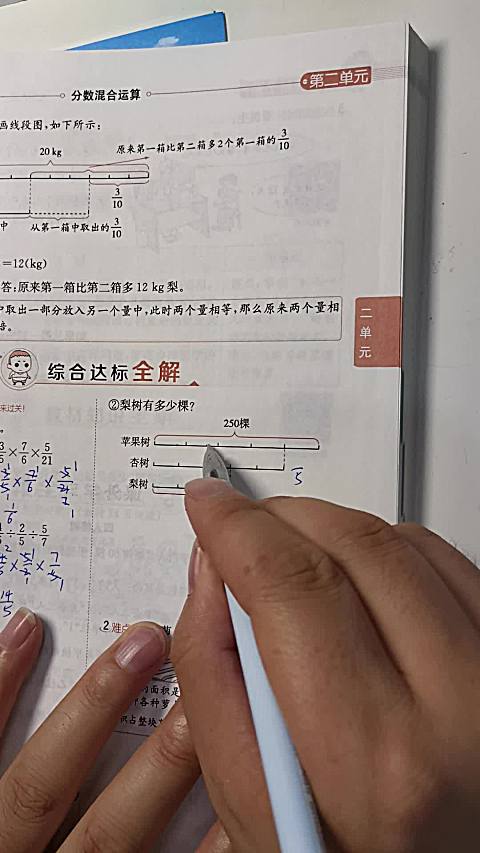 分数混合运算
第二单元
画线段图,如下所示:
20 kg
原来第一箱比第二箱多2个第一箱的3/10
3/10
中 从第一箱中取出的3/10
=12(kg)
答:原来第一箱比第二箱多 12 kg 梨。
中取出一部分放入另一个量中,此时两个量相等,那么原来两个量相
倍。
二单元
综合达标全解
来过关!
3/5×7/6×5/21
1/6
÷2/5÷5/7
14/5
②梨树有多少棵?
250棵
苹果树
杏树
梨树
5
2.难点
的面积是
各种萝
积占整块